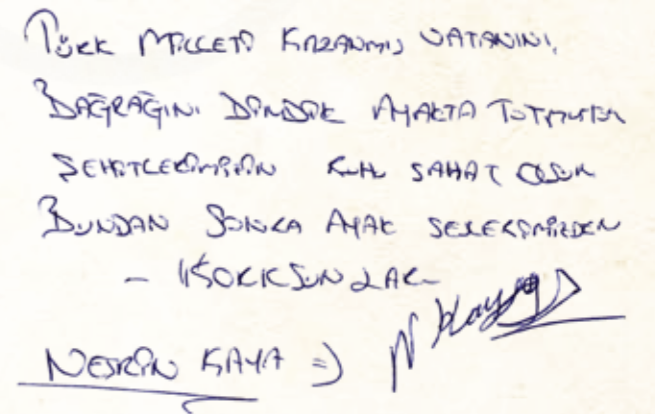 Türk MİLLETİ KAZANMIŞ VATANINI,
BAĞRAĞINI DİMDİK AYAKTA TUTMUŞTUR
ŞEHİTLERİMİZİN RUHU SAHAT OLSUN
BUNDAN SONRA AYAK SESLERİMİZDEN
- KORKSUNLAR -
NESRİN KAYA =) N Kaya